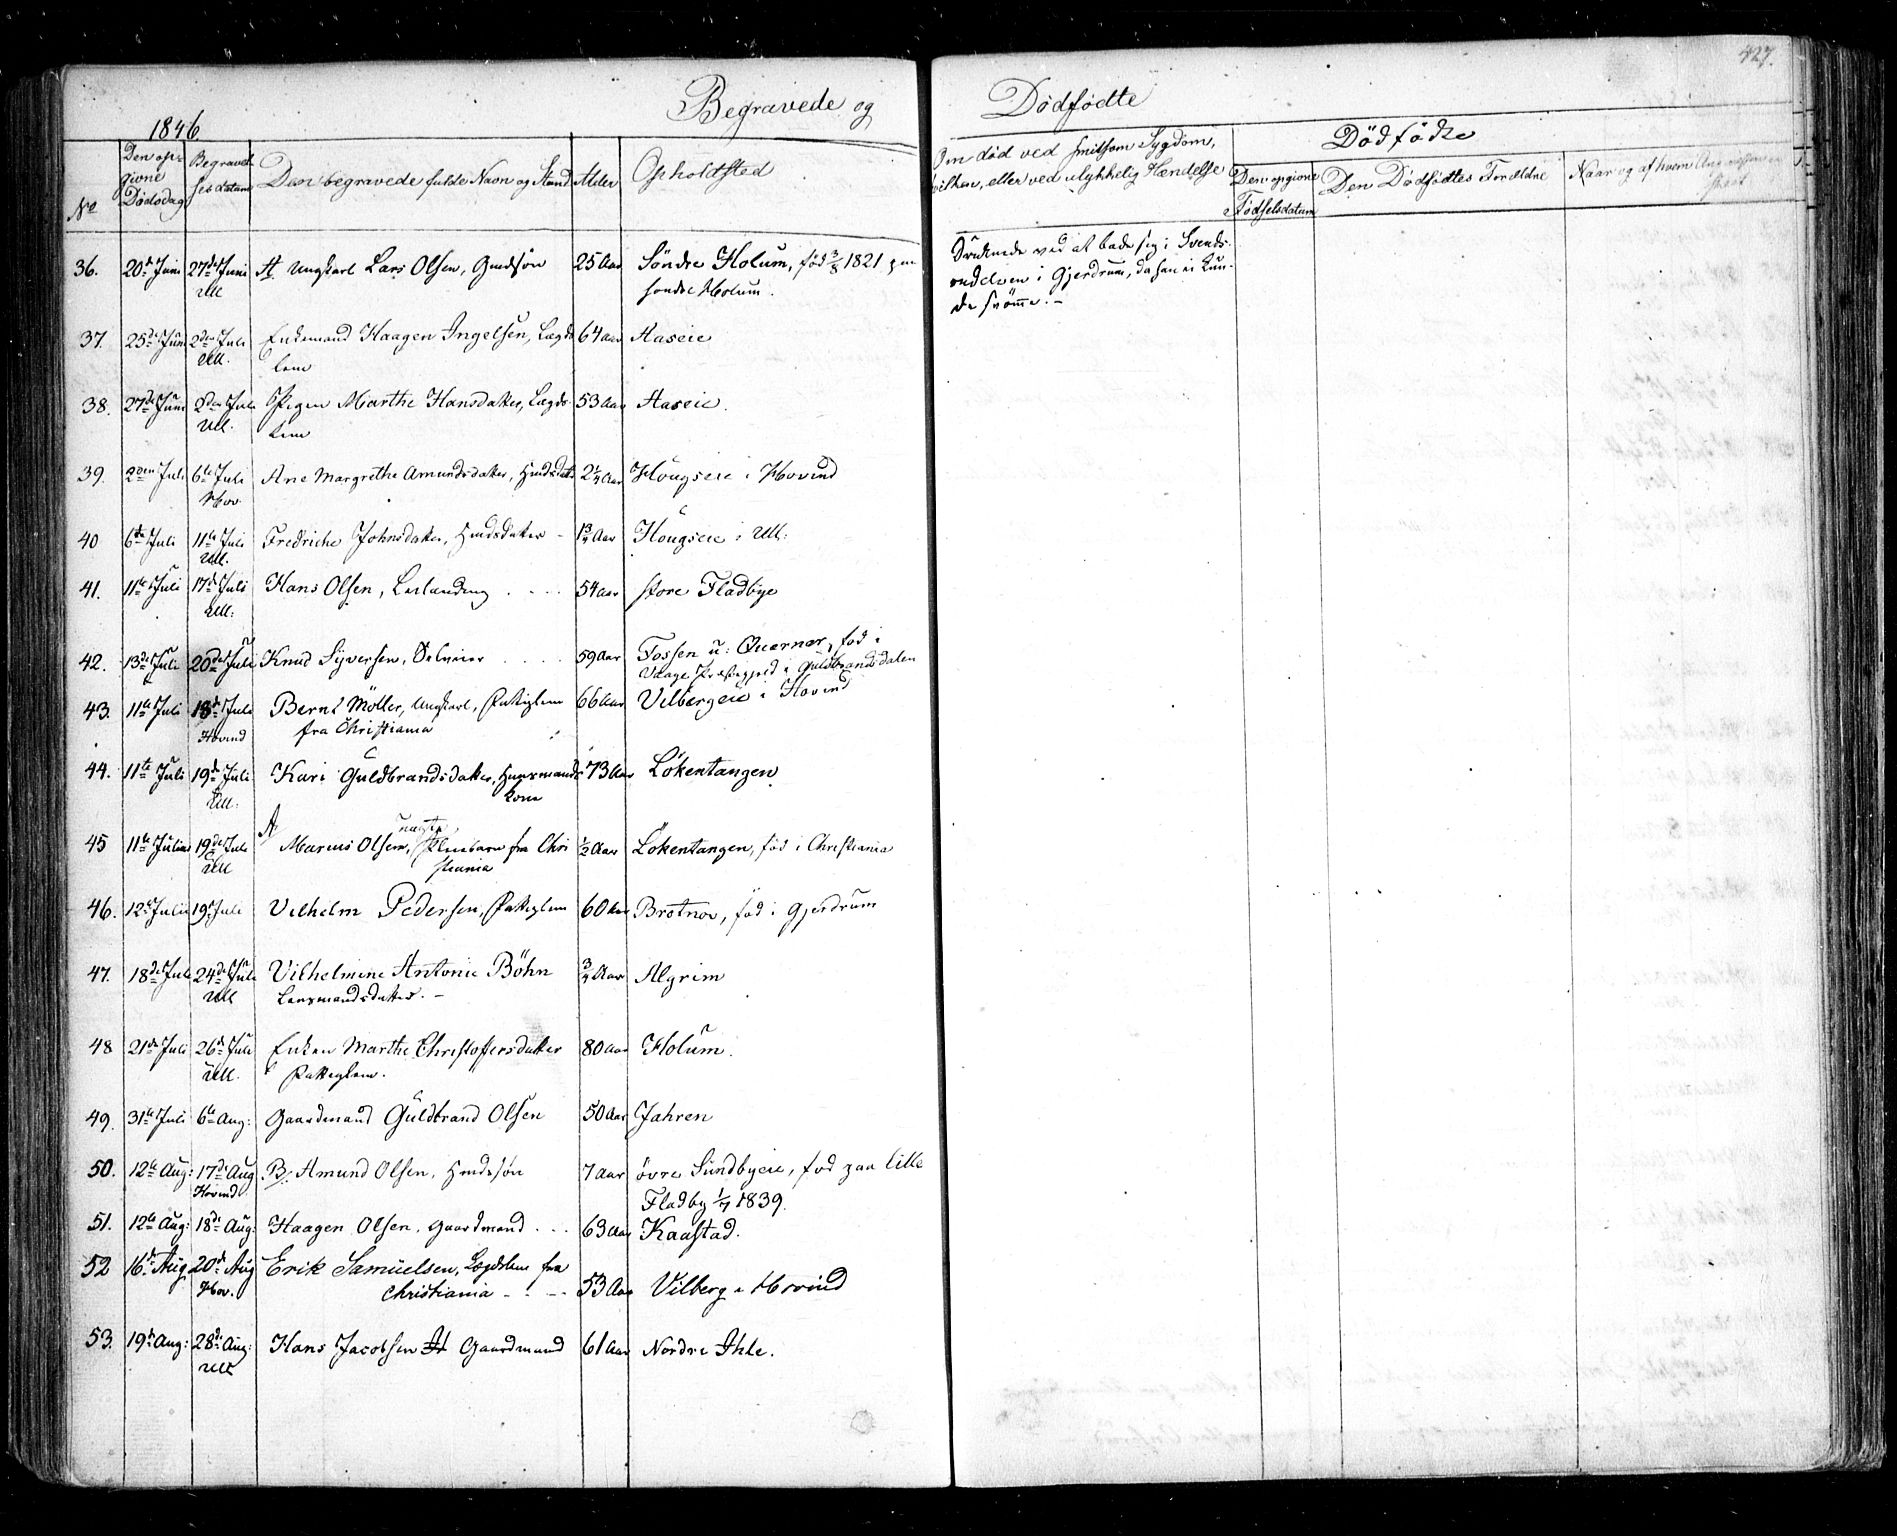 427.
1846
Begravede og Dödfödte
No
Den op-
givne
Dödsdag
Begravel-
sesdatum
Den begravede fulde Navn og Stand
Alder
Opholdsted
Om död ved smitsom Sygdom,
hvilken, eller ved ulykkelig Hændelse
Dödfödte
Den opgivne
Födselsdatum
Den Dödfödtes Forældre
Naar og af hvem
36. 20de Juni 27de Juni A. Ungkarl Lars Olsen, Gmdsön 25 Aar Söndre Holum, föd 3/8 1821 paa
Ull söndre Holum.
Druknede ved at bade sig i
elven i Gjerdrum, da han ei kun-
de svömme. -
37. 25de Juni 2den Juli Enkemand Haagen Ingelsen, Lægds 64 Aar Aaseie
Ull. lem
38. 27de Juni 2den Juli Pigen Marthe Hansdatter, Lægds- 53 Aar Aaseie.
Ull. lem
39. 2den Juli 6te Juli Ane Margrethe Amundsdatter, Hmdsdatt 2 1/4 Aar Hougseie i Hovind
Hov.
40 6te Juli 11te Juli Fredriche Johnsdatter, Hmdsdatter - 1 3/4 Aar Hougseie i Ull:
Ull.
41. 11te Juli 17de Juli Hans Olsen, 54 Aar store Fladbye
Ull:
42. 13de Juli 20de Juli Knud Syversen, Selveier 59 Aar Fossen u: Quernær, föd i
Vaage Præstegjeld i Guldbrandsdalen
43. 11te Juli 18de Juli Bernt Möller, Ungkarl, Fattiglem 66 Aar Vilbergeie i Hovind
Hovind fra Christiania
44. 11te Juli 19de Juli Kari Guldbrandsdatter, Huusmands 73 Aar Lökentangen
Ull: Kone
45 11te Julii 19de Juli A Marius Olsen, uægte Pleiebarn fra Chri 1/2 Aar Lökentangen, föd i Christiania
Ull stiania
46. 12te Julii 19de Juli Vilhelm Pedersen, Fattiglem 60 Aar Brotnov, föd i Gjerdrum
47. 18de Juli 24de Juli Vilhelmine Antonie Böhn 3/4 Aar Algrim
Ull Lensmandsdatter. -
48 21de Juli 26de Juli Enken Marthe Christoffersdatter 80 Aar Holum.
Ull. Fattiglem.
49. 31te Juli 6te Aug: Gaardmand Guldbrand Olsen 50 Aar Jahren
50. 12te Aug: 17de Aug B. Amund Olsen, Hmdssön 7 Aar övre Sundbyeie, föd paa lille
Hovind Fladby 1/7 1839.
51. 12te Aug: 18de Aug: Haagen Olsen, Gaardmand 63 Aar Kaastad.
52 16de Aug 20de Aug Erik Samuelsen, Lægdslem fra
Hov. Christiania 53 Aar Vilberg i Hovind
53. 19de Aug: 28de Aug: Hans Jacobsen Gaardmand 61 Aar Nordre Ihle.
Ull